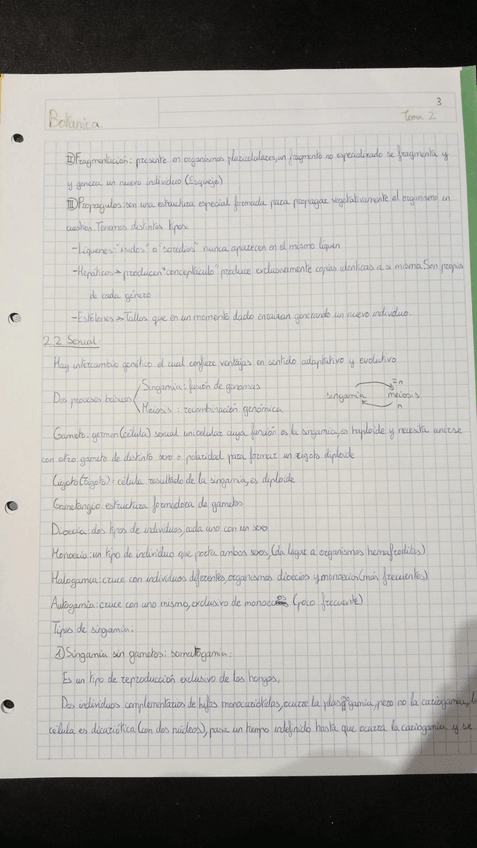 3
Botanica
Tema 2
II) Fragmentación: presente en organismos pluricelulares, un fragmento no especializado se fragmenta y
y genera un nuevo individuo (Esqueje)
III) Propagulos: son una estructura especial formada para propagar vegetativamente el organismo en
cuestion. Tenemos distintos tipos
-Liquenes: "isidios" o "soredios" nunca aparecen en el mismo liquen
-Hepáticas → producen "conceptáculo" produce exclusivamente copias identicas a si misma. Son propios
de cada género
-Estolones → Tallos que en un momento dado enraizan generando un nuevo individuo.
2.2 Sexual
Hay intercambio genético el cual confiere ventajas en sentido adaptativo y evolutivo
Singamia: fusión de genomas
Dos procesos básicos
Meiosis: recombinación genómica
singamia meiosis
2n
n
Gameto: germen (célula) sexual unicelular cuya función es la singamia, es haploide y necesita unirse
con otro gameto de distinto sexo o polaridad para formar un zigoto diploide
Cigoto (Zigoto): célula resultado de la singamia, es diploide
Gametangio: estructura formadora de gametos
Dioecia: dos tipos de individuos, cada uno con un sexo
Monoecia: un tipo de individuo que porta ambos sexos, (da lugar a organismos hemafroditas)
Halogamia: cruce con individuos diferentes, organismos dioecios y monoecios (más frecuentes)
Autogamia: cruce con uno mismo, exclusivo de (poco frecuente)
Tipos de singamia.
Singamia sin gametos: somatogamia:
Es un tipo de reproducción exclusivo de los hongos,
Dos individuos complementarios de hifas monocarióticas, ocurre la plasmogamia, pero no la cariogamia, la
célula es dicariótica (con dos núcleos), pasa un tiempo indefinido hasta que ocurra la cariogamia y se